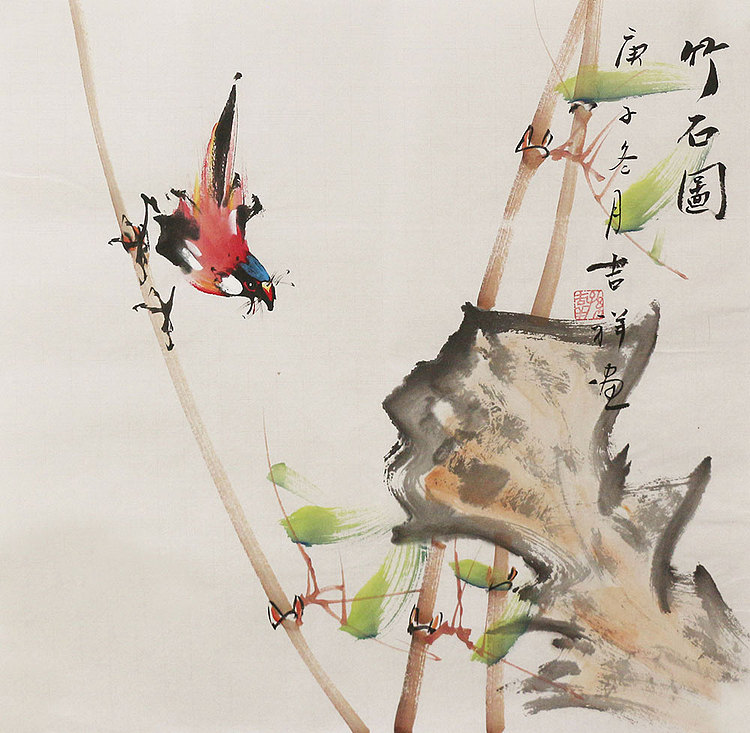 竹石圖
庚子冬月吉祥畫